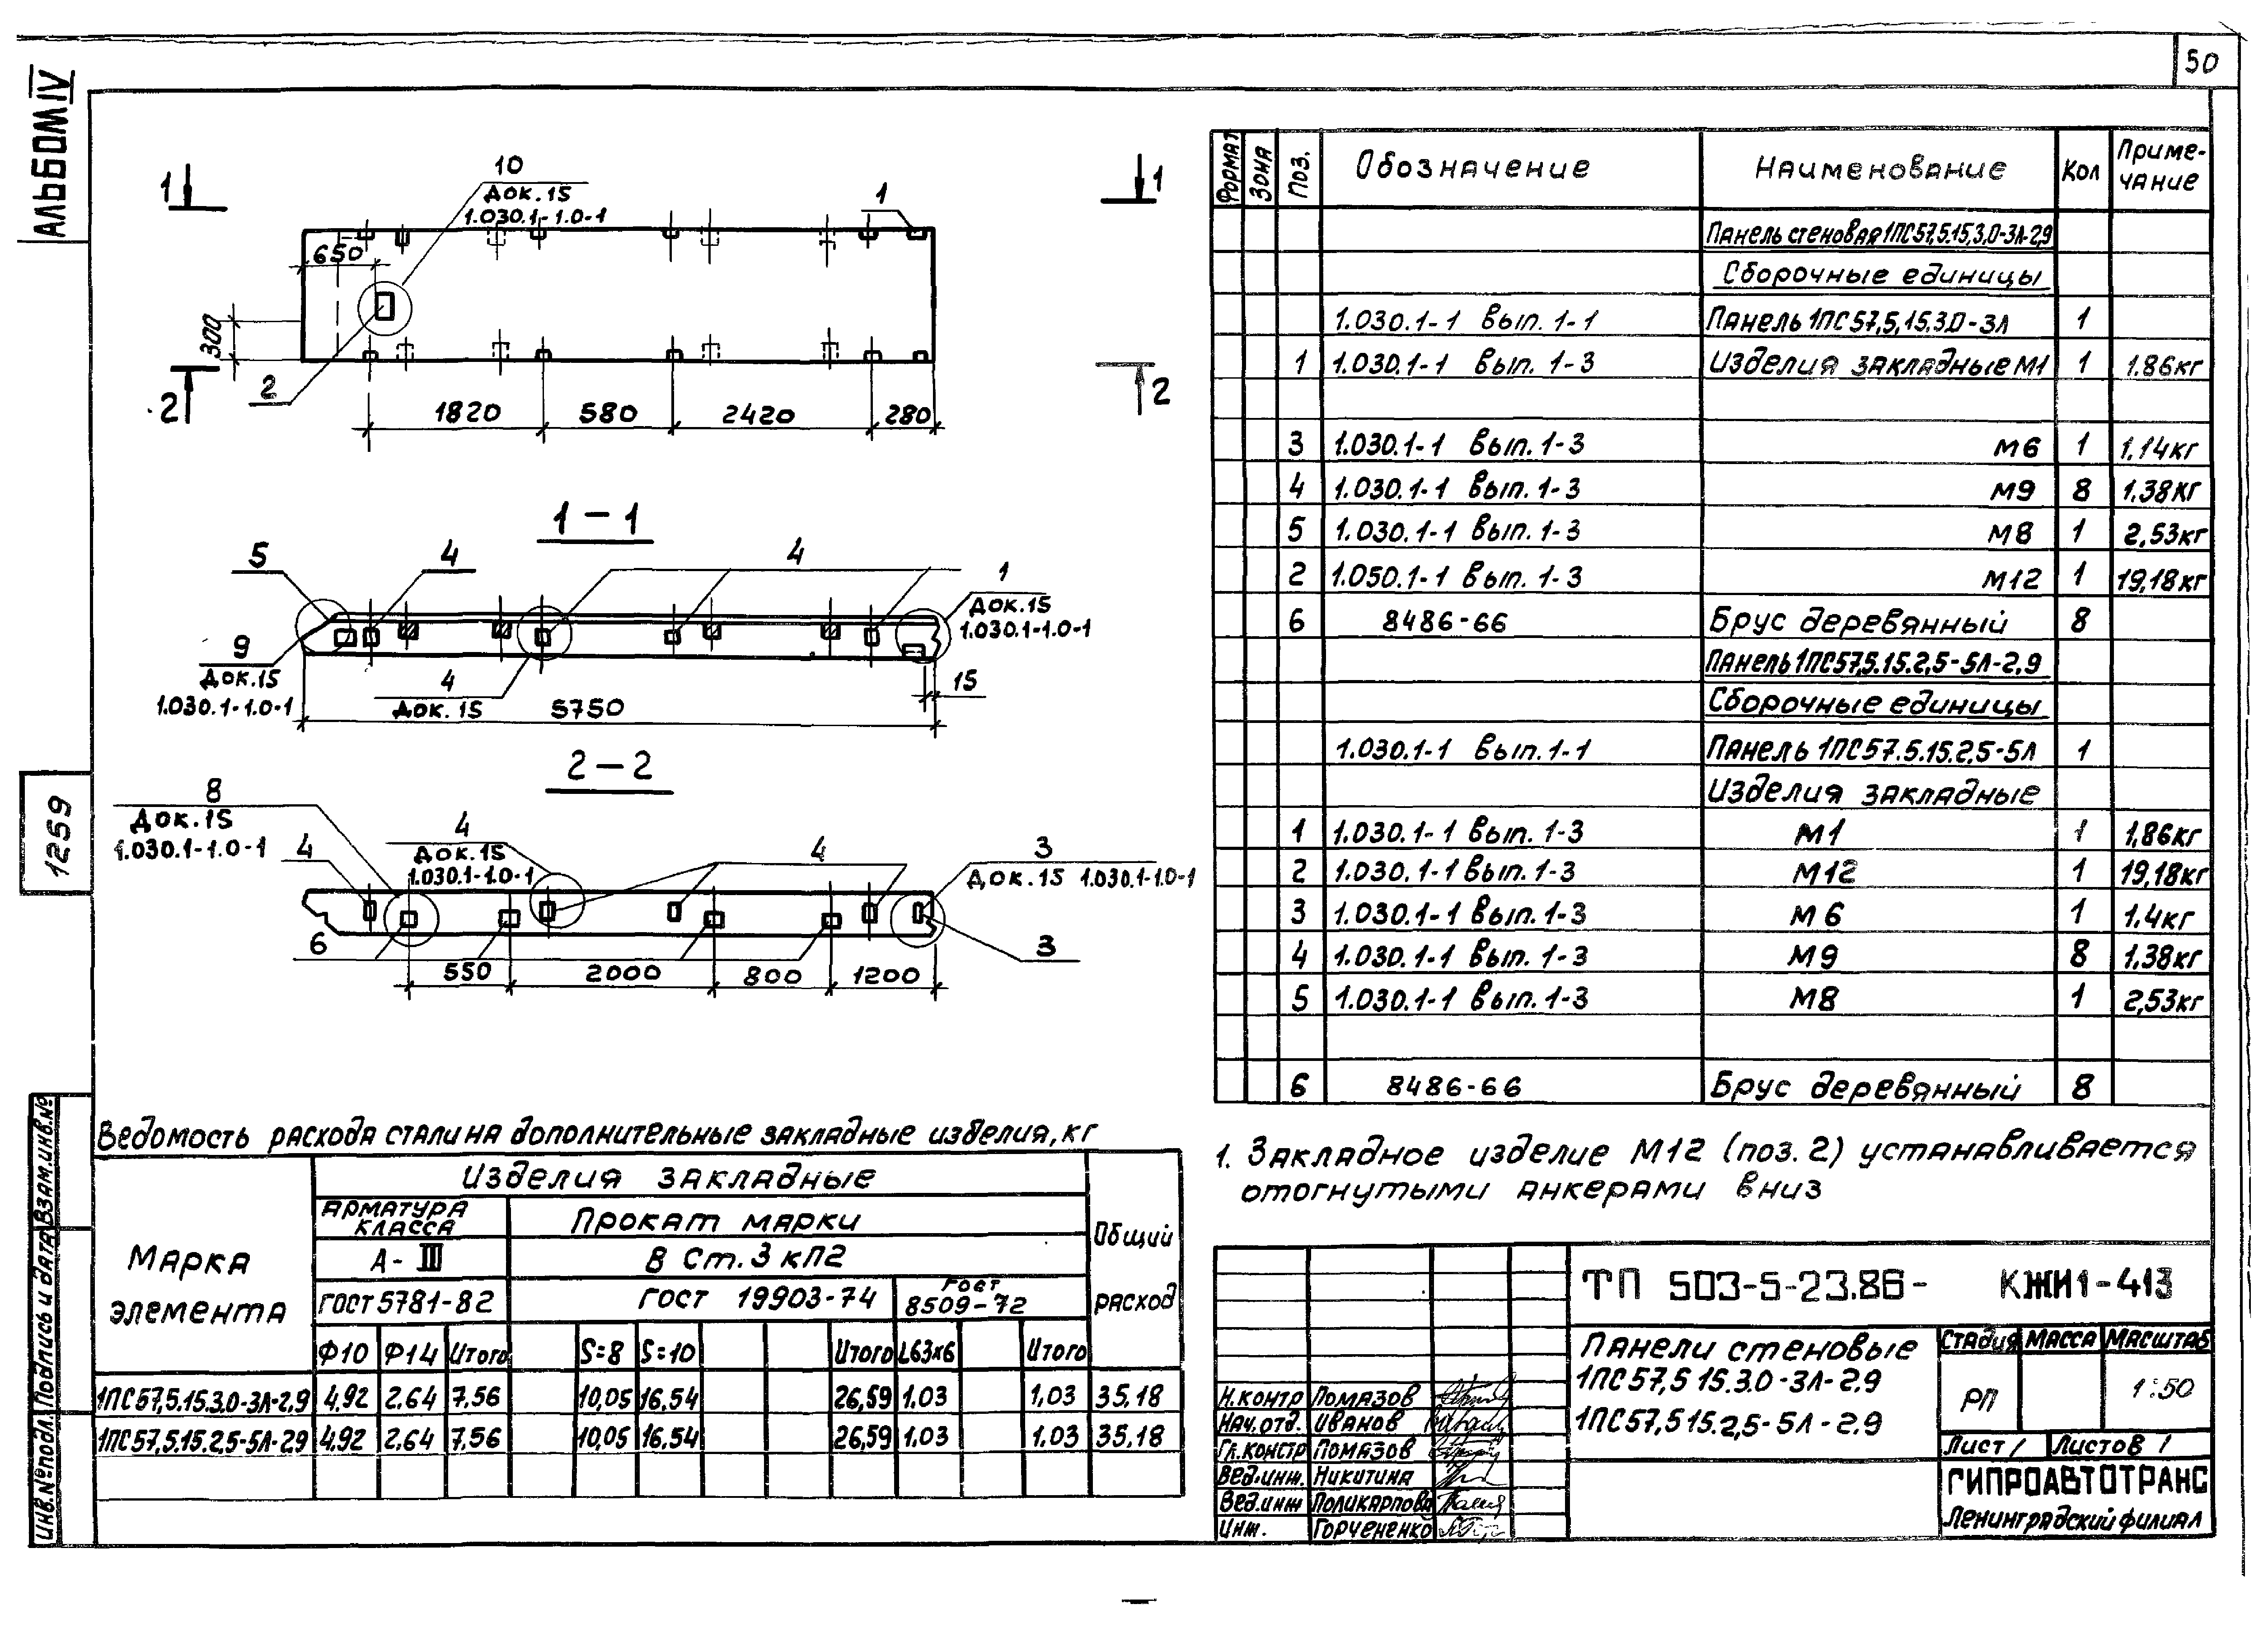 50
АЛЬБОМ IV
1259
ИНВ.№ПОДЛ. ПОДПИСЬ И ДАТА ВЗАМ.ИНВ.№
1
10
ДОК.15
1.030.1-1.0-1
1
1
650
300
2
2
2
1820 580 2420 280
1-1
5
4
4
1
ДОК.15
1.030.1-1.0-1
9
ДОК.15
1.030.1-1.0-1
4
ДОК.15
15
5750
2-2
8
ДОК.15
1.030.1-1.0-1
4
4
ДОК.15
1.030.1-1.0-1
4
3
ДОК.15 1.030.1-1.0-1
6
3
550 2000 800 1200
ФОРМАТ ЗОНА ПОЗ. Обозначение Наименование Кол Приме-
чание
Панель стеновая 1ПС57,5.15,3,0-3Л-2,9
Сборочные единицы
1.030.1-1 Вып. 1-1 Панель 1ПС57,5,15.3.0-3Л 1
1 1.030.1-1 Вып. 1-3 Изделия закладные М1 1 1.86кг
3 1.030.1-1 Вып. 1-3 М6 1 1,14кг
4 1.030.1-1 Вып. 1-3 М9 8 1,38кг
5 1.030.1-1 Вып. 1-3 М8 1 2,53кг
2 1.050.1-1 Вып. 1-3 М12 1 19,18кг
6 8486-66 Брус деревянный 8
Панель 1ПС57,5.15.2,5-5Л-2,9
Сборочные единицы
1.030.1-1 Вып. 1-1 Панель 1ПС57.5.15.2,5-5Л 1
Изделия закладные
1 1.030.1-1 Вып. 1-3 М1 1 1,86кг
2 1.030.1-1 Вып. 1-3 М12 1 19,18кг
3 1.030.1-1 Вып. 1-3 М6 1 1.4кг
4 1.030.1-1 Вып. 1-3 М9 8 1,38кг
5 1.030.1-1 Вып. 1-3 М8 1 2,53кг
6 8486-66 Брус деревянный 8
Ведомость расхода стали на дополнительные закладные изделия, кг
Марка
элемента
Изделия закладные
Общий
расход
АРМАТУРА
КЛАССА
Прокат марки
А-III В Ст.3 кп2
ГОСТ 5781-82 ГОСТ 19903-74 ГОСТ
8509-72
Ф10 Ф14 Итого S=8 S=10 Итого L63х6 Итого
1ПС57,5.15.3.0-3Л-2,9 4,92 2.64 7,56 10,05 16,54 26,59 1,03 1,03 35,18
1ПС57,5.15.2,5-5Л-2.9 4,92 2,64 7,56 10,05 16,54 26,59 1.03 1.03 35,18
1. Закладное изделие М12 (поз. 2) устанавливается
отогнутыми анкерами вниз
ТП 503-5-23.86- КЖИ1-413
Панели стеновые
1ПС57,5 15.3.0-3Л-2.9
1ПС57,5 15.2,5-5Л-2.9
СТАДИЯ МАССА МАСШТАБ
РП 1:50
Лист 1 Листов 1
ГИПРОАВТОТРАНС
Ленинградский филиал
Н.КОНТР ПОМАЗОВ
НАЧ.ОТД. ИВАНОВ
ГЛ.КОНСТР ПОМАЗОВ
Вед.инж. НИКИТИНА
Вед.инж ПОЛИКАРПОВА
Инж. ГОРЧЕНЕНКО